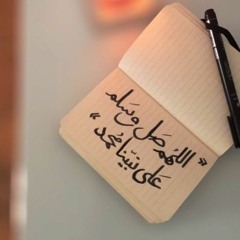 «اللهم صل وسلم
على نبينا محمد»